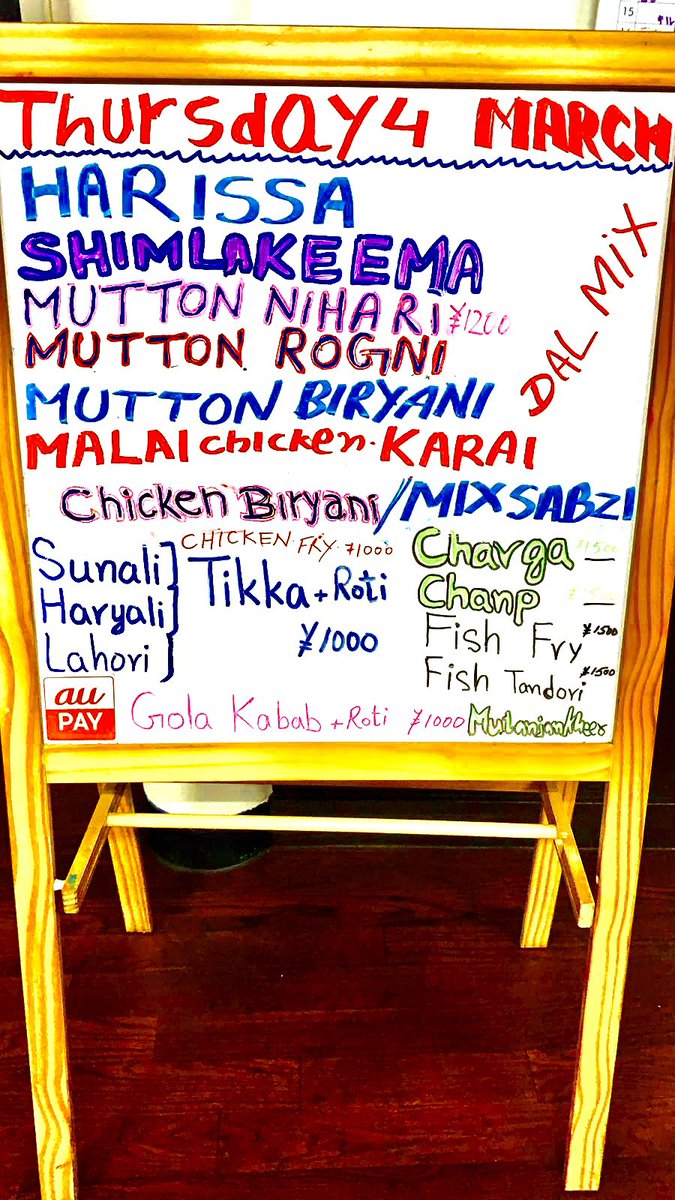 15
Thursday 4 MARCH
HARISSA
SHIMLA KEEMA
MUTTON NIHARI ¥1200
MUTTON ROGNI
DAL MIX
MUTTON BIRYANI
MALAI chicken. KARAI
Chicken Biryani / MIX SABZI
CHICKEN FRY ¥1000
Sunali
Haryali
Lahori
Tikka + Roti
¥1000
Charga ¥1500
Chanp ¥1500
Fish Fry ¥1500
Fish Tandori ¥1500
au
PAY
Gola Kabab + Roti ¥1000
Mutanjan Kheer